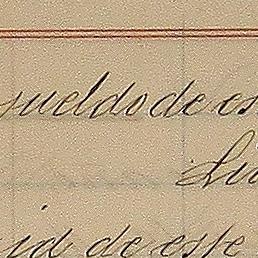 sueldo de es
Lu
id de este